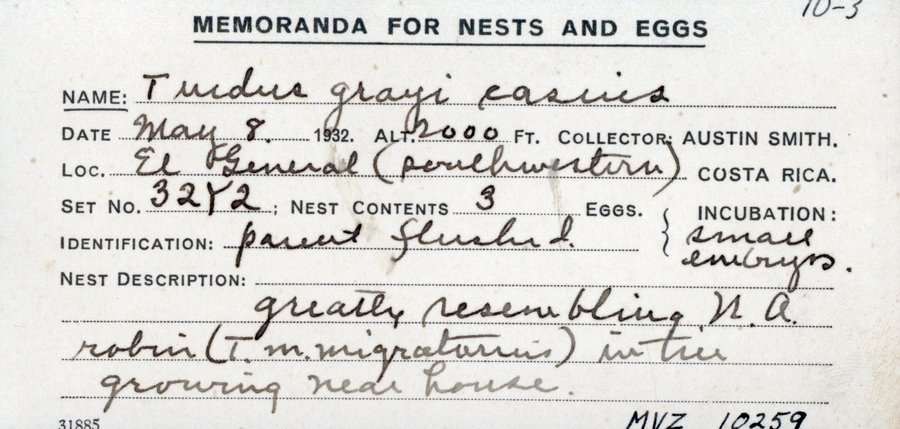 10-3
MEMORANDA FOR NESTS AND EGGS
NAME: Turdus grayi casius
DATE May 8. 1932. ALT. 2000 FT. COLLECTOR: AUSTIN SMITH.
LOC. El General (southwestern) COSTA RICA.
SET NO. 32Y2; NEST CONTENTS 3 EGGS. INCUBATION:
IDENTIFICATION: parent flushed. small
embryos.
NEST DESCRIPTION:
greatly resembling N. A.
robin (T. m. migratorius) in tree
growing near house.
31885 MVZ 10259